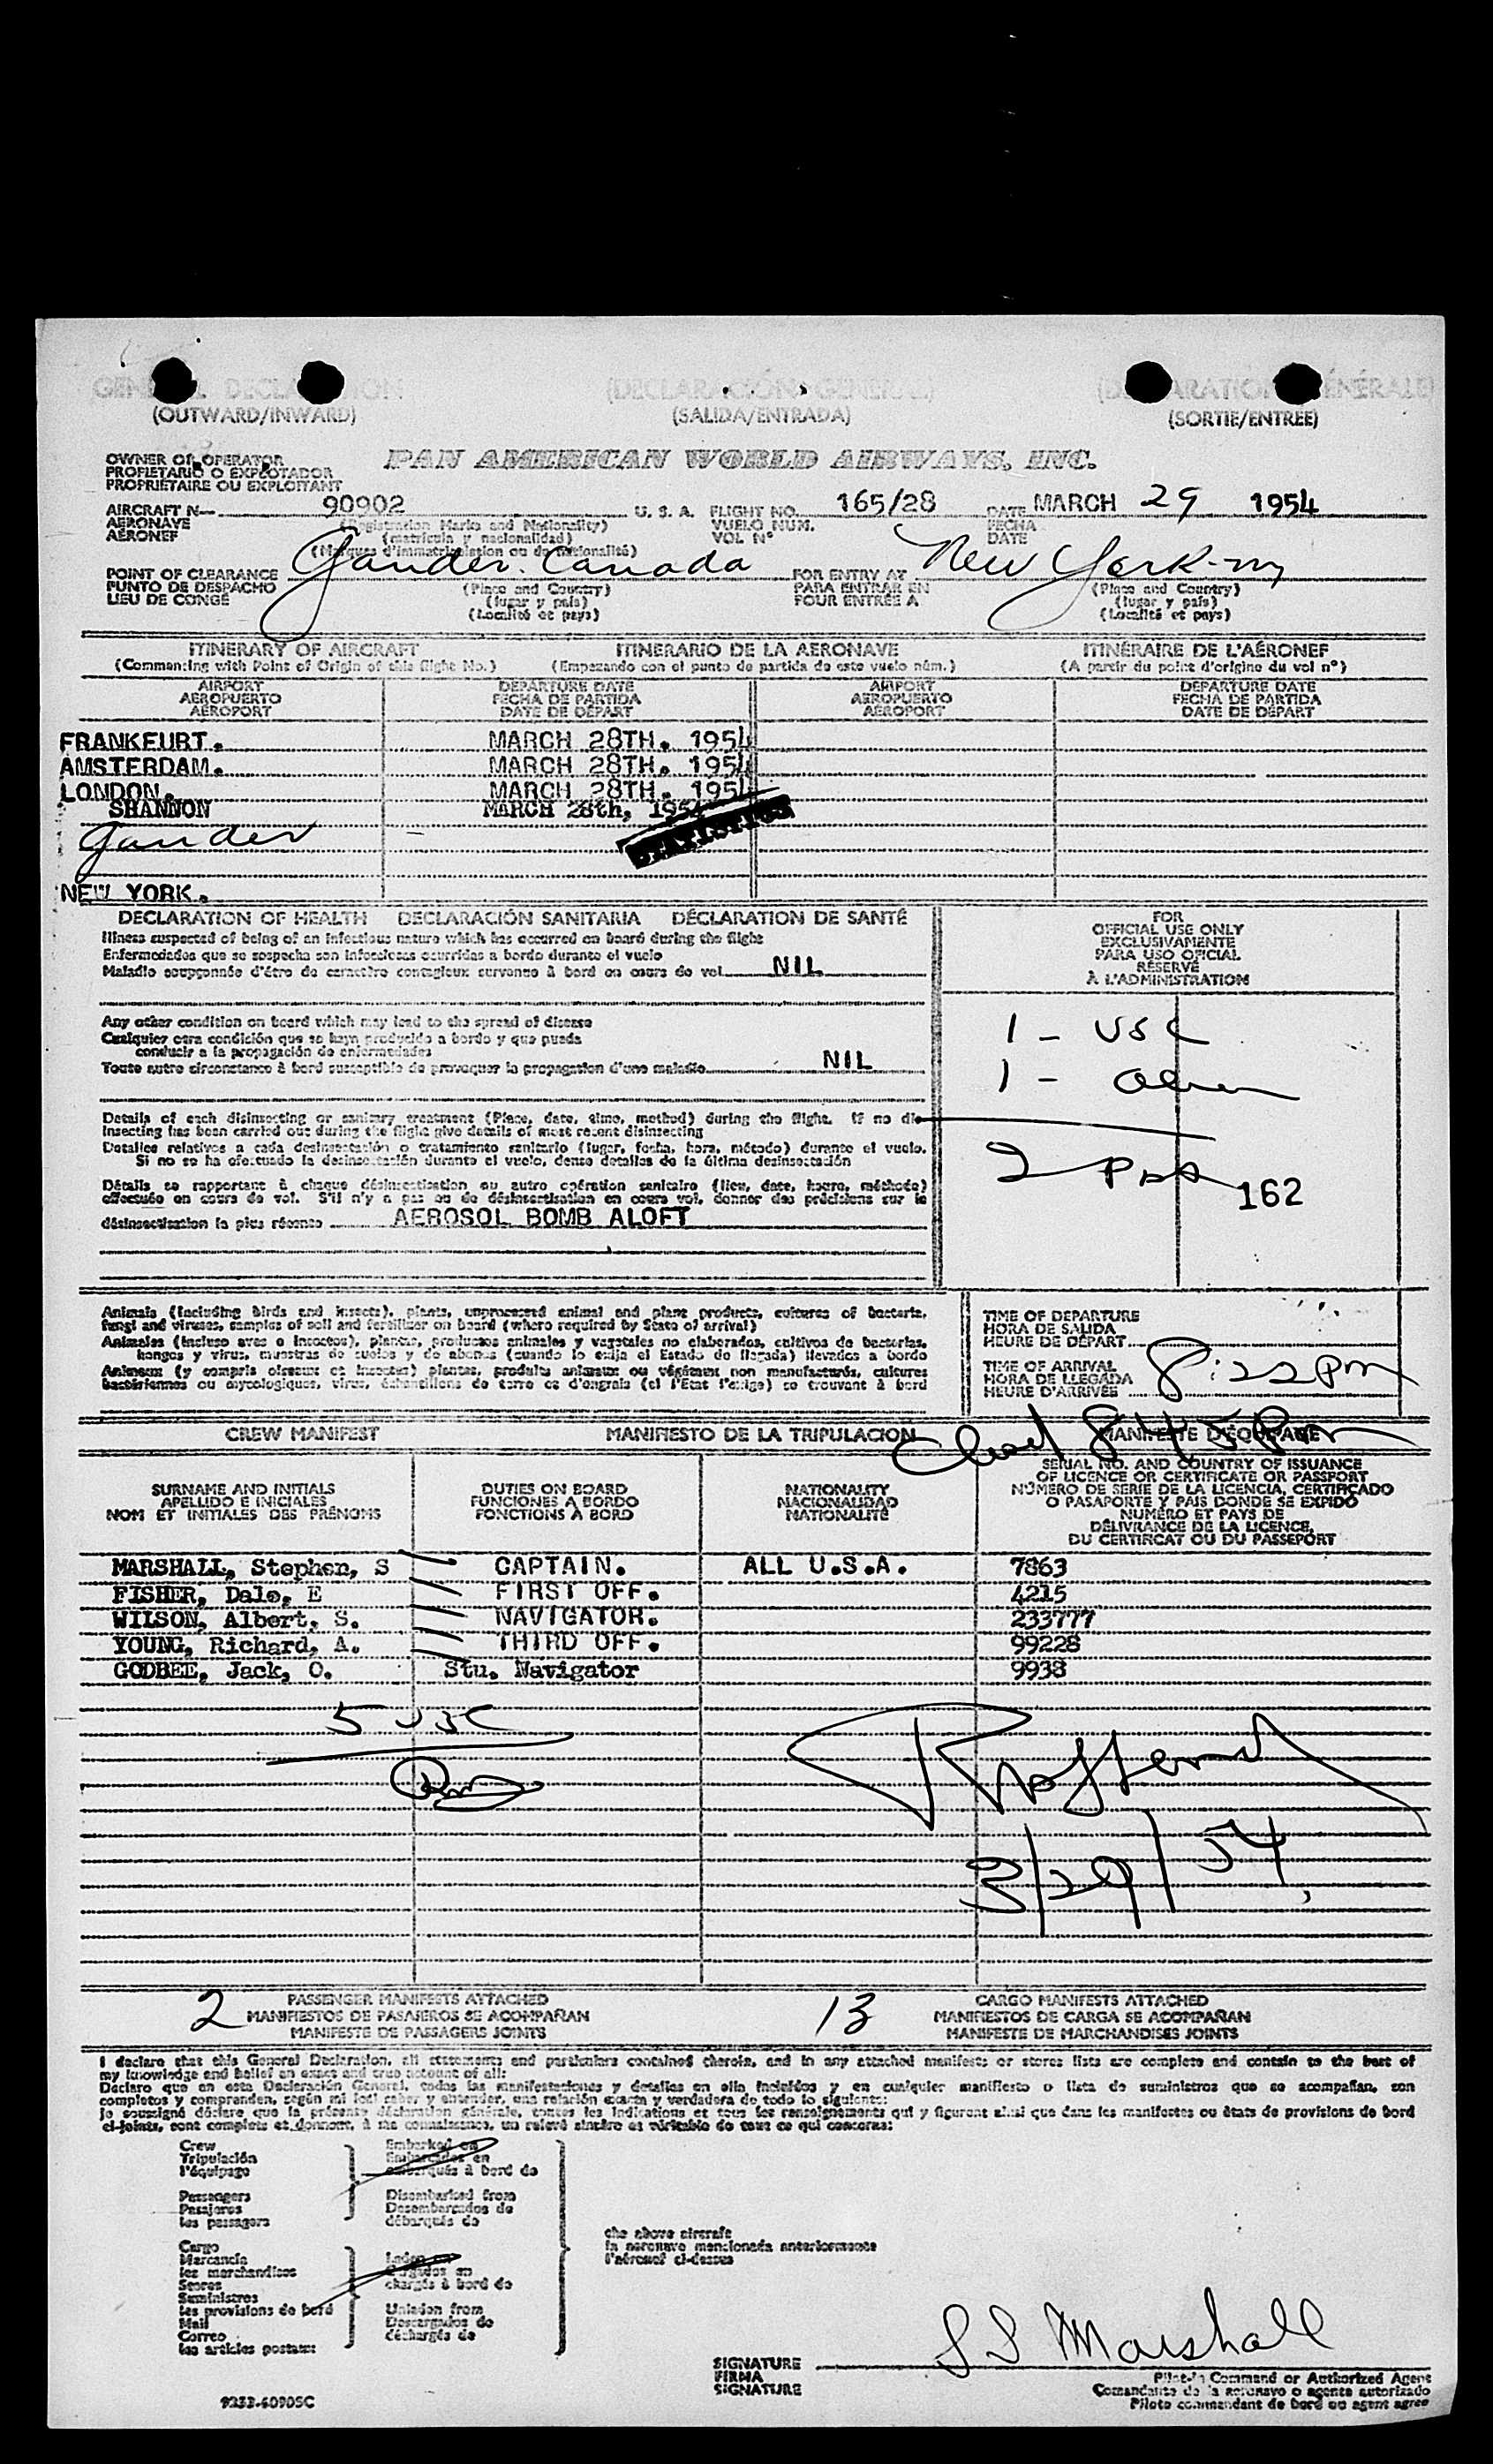 GENERAL DECLARATION (DECLARACIÓN GENERAL) (DÉCLARATION GÉNÉRALE)
(OUTWARD/INWARD) (SALIDA/ENTRADA) (SORTIE/ENTREE)
OWNER OR OPERATOR
PROPIETARIO O EXPLOTADOR
PROPRIÉTAIRE OU EXPLOITANT
PAN AMERICAN WORLD AIRWAYS, INC.
AIRCRAFT N— 90902 U. S. A. FLIGHT NO. 165/28 DATE MARCH 29 1954
AERONAVE (Registration Marks and Nationality) VUELO NUM. FECHA
AÉRONEF (matrícula y nacionalidad) VOL N° DATE
(Marques d'immatriculation ou de nationalité)
POINT OF CLEARANCE Gander. Canada FOR ENTRY AT New York-ny
PUNTO DE DESPACHO (Place and Country) PARA ENTRAR EN (Place and Country)
LIEU DE CONGÉ (lugar y país) POUR ENTRÉE A (lugar y país)
(Localité et pays) (Localité et pays)
ITINERARY OF AIRCRAFT ITINERARIO DE LA AERONAVE ITINÉRAIRE DE L'AÉRONEF
(Commencing with Point of Origin of this flight No.) (Empezando con el punto de partida de este vuelo núm.) (A partir du point d'origine du vol n°)
AIRPORT DEPARTURE DATE AIRPORT DEPARTURE DATE
AEROPUERTO FECHA DE PARTIDA AEROPUERTO FECHA DE PARTIDA
AÉROPORT DATE DE DÉPART AÉROPORT DATE DE DÉPART
FRANKFURT. MARCH 28TH. 1954
AMSTERDAM. MARCH 28TH. 1954
LONDON. MARCH 28TH. 1954
SHANNON MARCH 28th, 1954
STATISTICS
Gander
NEW YORK.
DECLARATION OF HEALTH DECLARACIÓN SANITARIA DÉCLARATION DE SANTÉ
Illness suspected of being of an infectious nature which has occurred on board during the flight
Enfermedades que se sospecha son infecciosas ocurridas a bordo durante el vuelo
Maladie soupçonnée d'être de caractère contagieux survenue à bord en cours de vol NIL
Any other condition on board which may lead to the spread of disease
Cualquier otra condición que se haya producido a bordo y que pueda
conducir a la propagación de enfermedades
Toute autre circonstance à bord susceptible de provoquer la propagation d'une maladie NIL
Details of each disinsecting or sanitary treatment (Place, date, time, method) during the flight. If no dis-
insecting has been carried out during the flight give details of most recent disinsecting
Detalles relativos a cada desinsectación o tratamiento sanitario (lugar, fecha, hora, método) durante el vuelo.
Si no se ha efectuado la desinsectación durante el vuelo, dense detalles de la última desinsectación
Détails se rapportant à chaque désinsectisation ou autre opération sanitaire (lieu, date, heure, méthode)
effectuée en cours de vol. S'il n'y a pas eu de désinsectisation en cours vol, donner des précisions sur la
désinsectisation la plus récente AEROSOL BOMB ALOFT
FOR
OFFICIAL USE ONLY
EXCLUSIVAMENTE
PARA USO OFICIAL
RÉSERVÉ
À L'ADMINISTRATION
1 - USC
1 - alien
2 162
Animals (including birds and insects), plants, unprocessed animal and plant products, cultures of bacteria,
fungi and viruses, samples of soil and fertilizer on board (where required by State of arrival)
Animales (incluso aves e insectos), plantas, productos animales y vegetales no elaborados, cultivos de bacterias,
hongos y virus, muestras de suelos y de abonos (cuando lo exija el Estado de llegada) llevados a bordo
Animaux (y compris oiseaux et insectes) plantes, produits animaux ou végétaux non manufacturés, cultures
bactériennes ou mycologiques, virus, échantillons de terre ou d'engrais (si l'État l'exige) se trouvant à bord
TIME OF DEPARTURE
HORA DE SALIDA
HEURE DE DÉPART
TIME OF ARRIVAL
HORA DE LLEGADA
HEURE D'ARRIVÉE 8:22 Pm
8 45 Pm
CREW MANIFEST MANIFIESTO DE LA TRIPULACION MANIFESTE D'ÉQUIPAGE
SURNAME AND INITIALS
APELLIDO E INICIALES
NOM ET INITIALES DES PRÉNOMS
DUTIES ON BOARD
FUNCIONES A BORDO
FONCTIONS A BORD
NATIONALITY
NACIONALIDAD
NATIONALITÉ
SERIAL NO. AND COUNTRY OF ISSUANCE
OF LICENCE OR CERTIFICATE OR PASSPORT
NÚMERO DE SERIE DE LA LICENCIA, CERTIFICADO
O PASAPORTE Y PAIS DONDE SE EXPIDÓ
NUMÉRO ET PAYS DE
DÉLIVRANCE DE LA LICENCE,
DU CERTIFICAT OU DU PASSEPORT
MARSHALL, Stephen, S CAPTAIN. ALL U.S.A. 7863
FISHER, Dale, E FIRST OFF. 4215
WILSON, Albert, S. NAVIGATOR. 233777
YOUNG, Richard, A. THIRD OFF. 99228
GODBEE, Jack, O. Stu. Navigator 9938
5 USC
3/29/54
2 PASSENGER MANIFESTS ATTACHED 13 CARGO MANIFESTS ATTACHED
MANIFIESTOS DE PASAJEROS SE ACOMPAÑAN MANIFIESTOS DE CARGA SE ACOMPAÑAN
MANIFESTE DE PASSAGERS JOINTS MANIFESTE DE MARCHANDISES JOINTS
I declare that this General Declaration, all statements and particulars contained therein, and in any attached manifests or stores lists are complete and contain to the best of
my knowledge and belief an exact and true account of all:
Declaro que en esta Declaración General, todas las manifestaciones y detalles en ella incluídos y en cualquier manifiesto o lista de suministros que se acompañan, son
completos y comprenden, según mi leal saber y entender, una relación exacta y verdadera de todo lo siguiente:
Je soussigné déclare que la présente déclaration générale, toutes les indications et tous les renseignements qui y figurent ainsi que dans les manifestes ou états de provisions de bord
ci-joints, sont complets et donnent, à ma connaissance, un relevé sincère et véritable de tout ce qui concerne:
Crew Embarked on
Tripulación Embarcados en
l'équipage embarqués à bord de
Passengers Disembarked from
Pasajeros Desembarcados de
les passagers débarqués de
the above aircraft
la aeronave mencionada anteriormente
l'aéronef ci-dessus
Cargo
Mercancía Laden on
les marchandises Cargados en
Stores chargés à bord de
Suministros
les provisions de bord Unladen from
Mail Descargados de
Correo déchargés de
les articles postaux
SIGNATURE S S Marshall
FIRMA
SIGNATURE
Pilot-in Command or Authorized Agent
Comandante de la aeronave o agente autorizado
Pilote commandant de bord ou agent agréé
9233-60905C